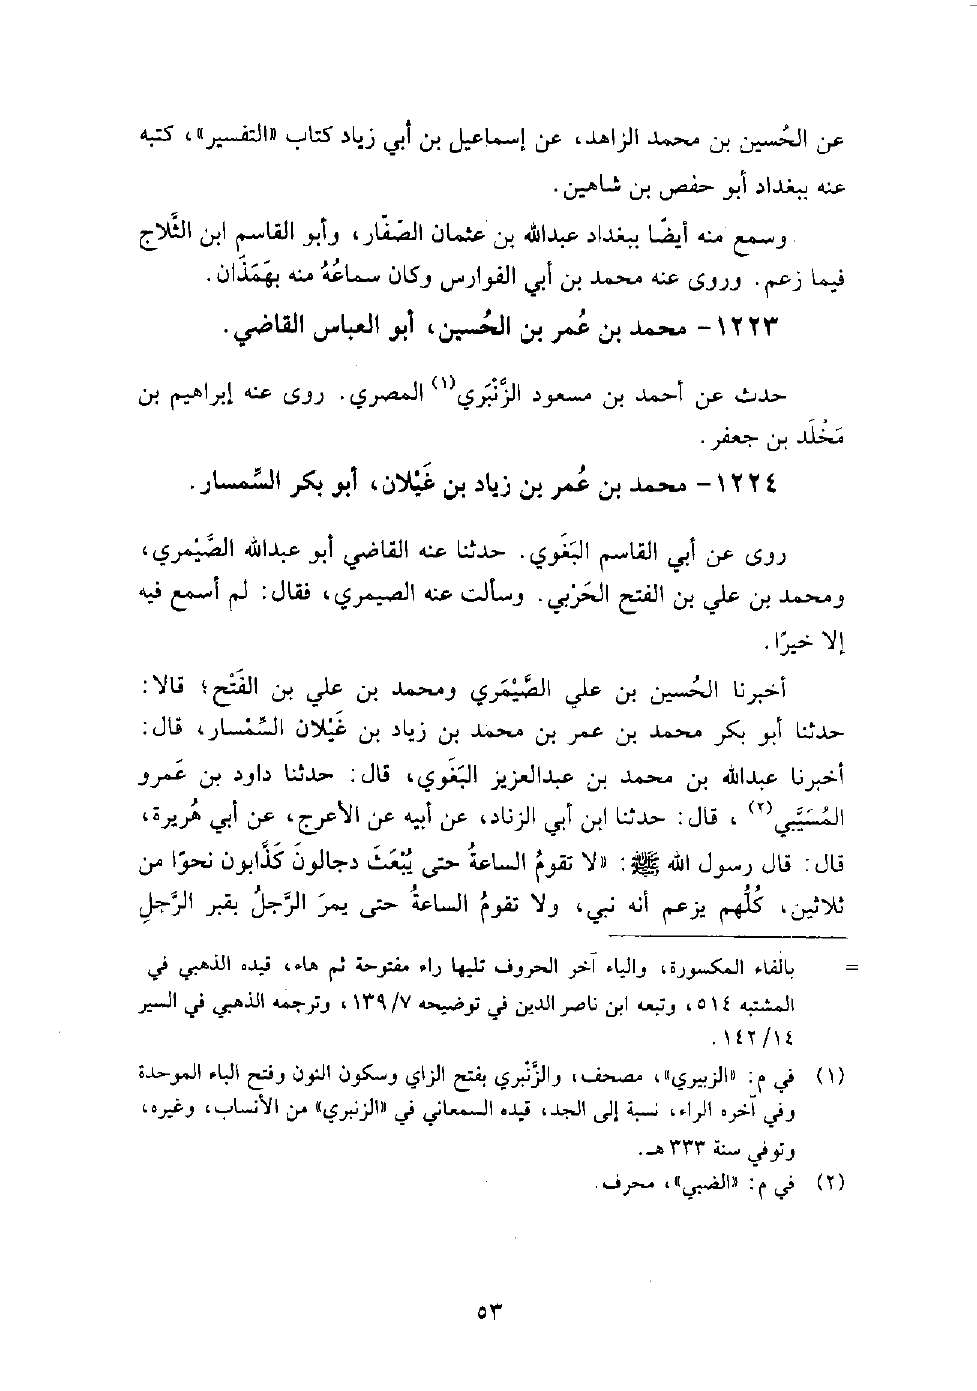 عن الحُسين بن محمد الزاهد، عن إسماعيل بن أبي زياد كتاب «التفسير»، كتبه
عنه ببغداد أبو حفص بن شاهين.
وسمع منه أيضًا ببغداد عبدالله بن عثمان الصَّفّار، وأبو القاسم ابن الثَّلاج
فيما زعم. وروى عنه محمد بن أبي الفوارس وكان سماعُهُ منه بهَمَذَان.
١٢٢٣- محمد بن عُمر بن الحُسين، أبو العباس القاضي.
حدث عن أحمد بن مسعود الزَّنْبَري(١) المصري. روى عنه إبراهيم بن
مَخْلَد بن جعفر.
١٢٢٤- محمد بن عُمر بن زياد بن غَيْلان، أبو بكر السِّمسار.
روى عن أبي القاسم البَغَوي. حدثنا عنه القاضي أبو عبدالله الصَّيْمري،
ومحمد بن علي بن الفتح الحَرْبي. وسألت عنه الصيمري، فقال: لم أسمع فيه
إلا خيرًا.
أخبرنا الحُسين بن علي الصَّيْمَري ومحمد بن علي بن الفَتْح؛ قالا:
حدثنا أبو بكر محمد بن عمر بن محمد بن زياد بن غَيْلان السِّمْسار، قال:
أخبرنا عبدالله بن محمد بن عبدالعزيز البَغَوي، قال: حدثنا داود بن عَمرو
المُسَيَّبي(٢)، قال: حدثنا ابن أبي الزناد، عن أبيه عن الأعرج، عن أبي هُريرة،
قال: قال رسول الله ﷺ: «لا تقومُ الساعةُ حتى يُبْعَثَ دجالونَ كَذَّابون نحوًا من
ثلاثين، كُلُّهم يزعم أنه نبي، ولا تقومُ الساعةُ حتى يمرَ الرَّجلُ بقبر الرَّجلِ
= بالفاء المكسورة، والياء آخر الحروف تليها راء مفتوحة ثم هاء، قيده الذهبي في
المشتبه ٥١٤، وتبعه ابن ناصر الدين في توضيحه ٧/ ١٣٩، وترجمه الذهبي في السير
١٤/ ١٤٢.
(١) في م: «الزبيري»، مصحف، والزَّنْبري بفتح الزاي وسكون النون وفتح الباء الموحدة
وفي آخره الراء، نسبة إلى الجد، قيده السمعاني في «الزنبري» من الأنساب، وغيره،
وتوفي سنة ٣٣٣ هـ.
(٢) في م: «الضبي»، محرف.
٥٣